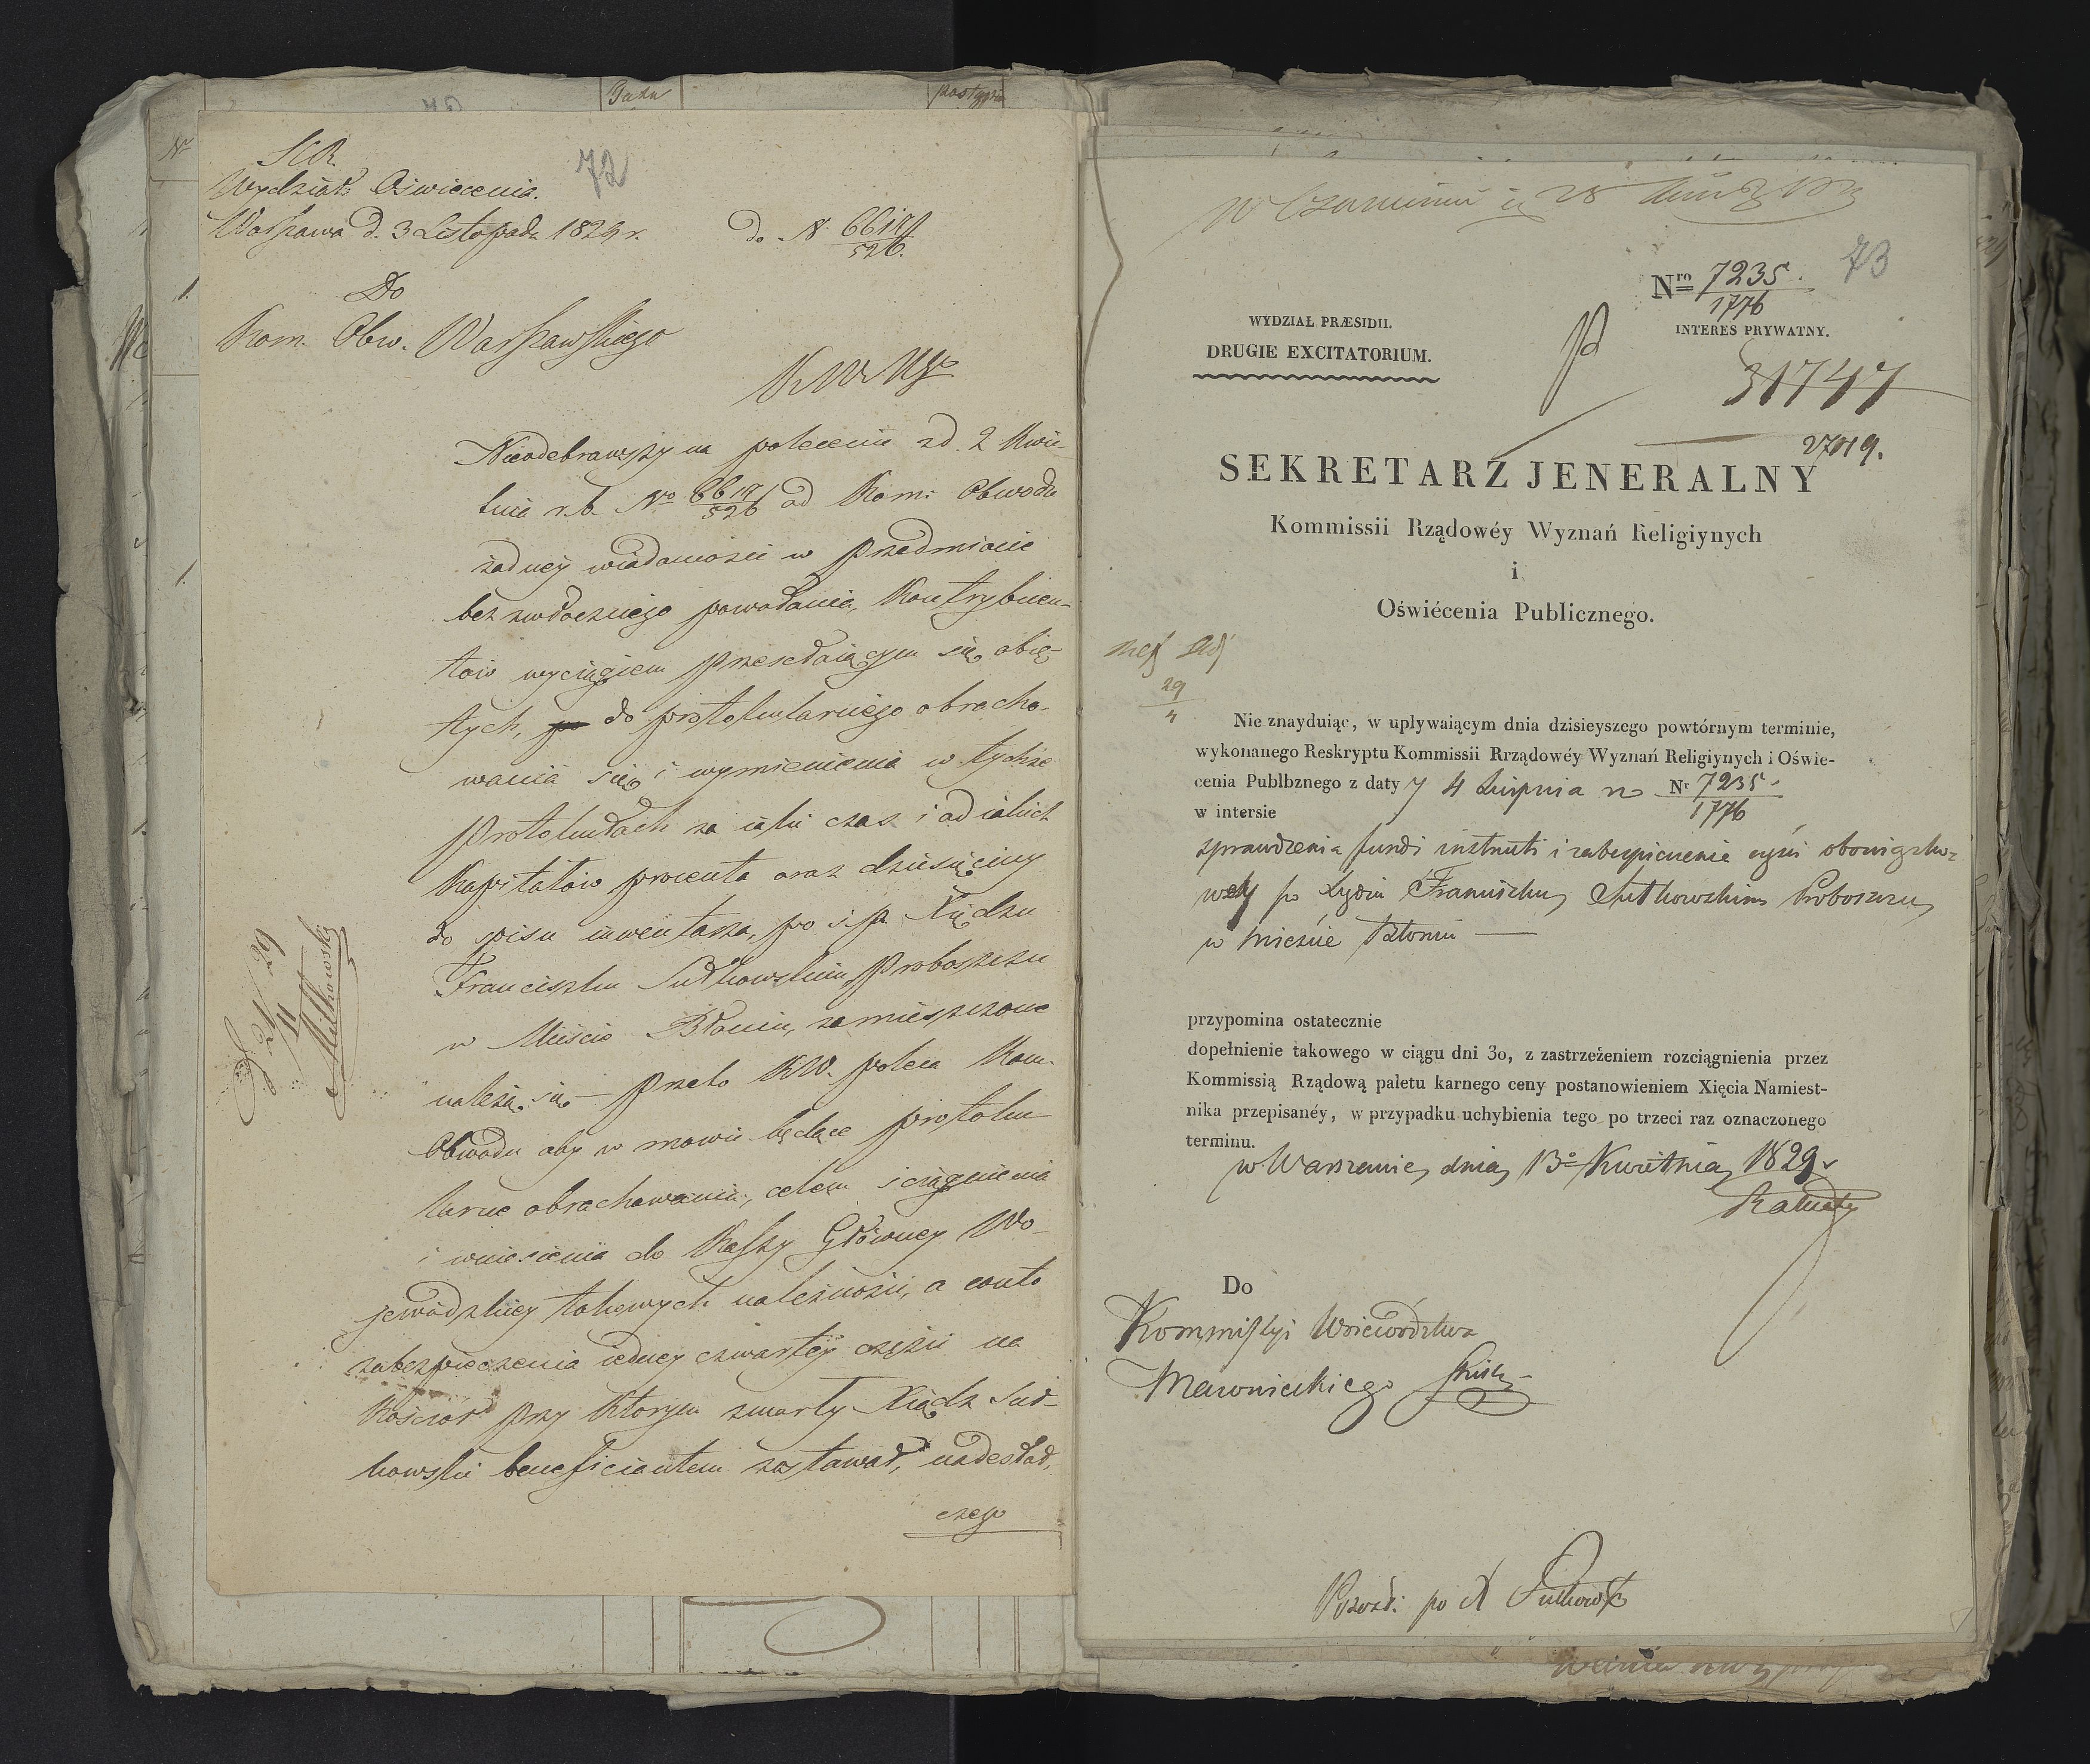 72
Wydział Oświecenia.
Warszawa d. 3 Listopada 1829 r.
do N. 6619/526.
Do
Kom. Obw. Warszawskiego
KWMgo
Nieodebrawszy na polecenie z d. 2 Kwie-
tnia r. b. No 6619/526 od Kom: Obwodu
żadney wiadomości w przedmiocie
bezzwłocznego powołania Kontrybuen-
tów wyciągiem przesełaiącym się obię-
tych, do protokularnego obracho-
wania się i wymienienia w tychże
Protokułach za iaki czas i od iakich
Kapitałów procenta oraz dziesięciny
do spisu inwentarza, po ś. p. Xiędzu
Franciszku Sutkowskim Proboszczu
w Mieście Błoniu, zamieszczone
należą się – przeto KW. poleca Kom.
Obwodu aby w mowie będące protoku-
larne obrachowania, celem ściągnienia
i wniesienia do Kassy Główney Wo-
jewódzkiey takowych należności, a conto
zabezpieczenia iedney czwartey części na
Kościół przy którym zmarły Xiądz Sut-
kowski beneficiantem zostawał, nadesłał,
czego
21/11 29
Miłkowski
73
Nro 7235/1776
INTERES PRYWATNY.
WYDZIAŁ PRÆSIDII.
DRUGIE EXCITATORIUM.
31747
27019.
SEKRETARZ JENERALNY
Kommissii Rządowéy Wyznań Religiynych
i
Oświécenia Publicznego.
29/4
Nie znayduiąc, w upływaiącym dnia dzisieyszego powtórnym terminie,
wykonanego Reskryptu Kommissii Rrządowéy Wyznań Religiynych i Oświe-
cenia Publbznego z daty 4 Sierpnia Nr 7235/1776
w intersie
sprawdzenia fundi instructi i zabezpieczenie części obowiązko-
wey po Xiędzu Franciszku Sutkowskim Proboszczu
w mieście Błoniu —
przypomina ostatecznie
dopełnienie takowego w ciągu dni 3o, z zastrzeżeniem rozciągnienia przez
Kommissią Rządową paletu karnego ceny postanowieniem Xięcia Namiest-
nika przepisanéy, w przypadku uchybienia tego po trzeci raz oznaczonego
terminu.
w Warszawie, dnia 13o Kwietnia 1829 r
Do
Kommissyi Woiewództwa
Mazowieckiego
po X Sutkowsk